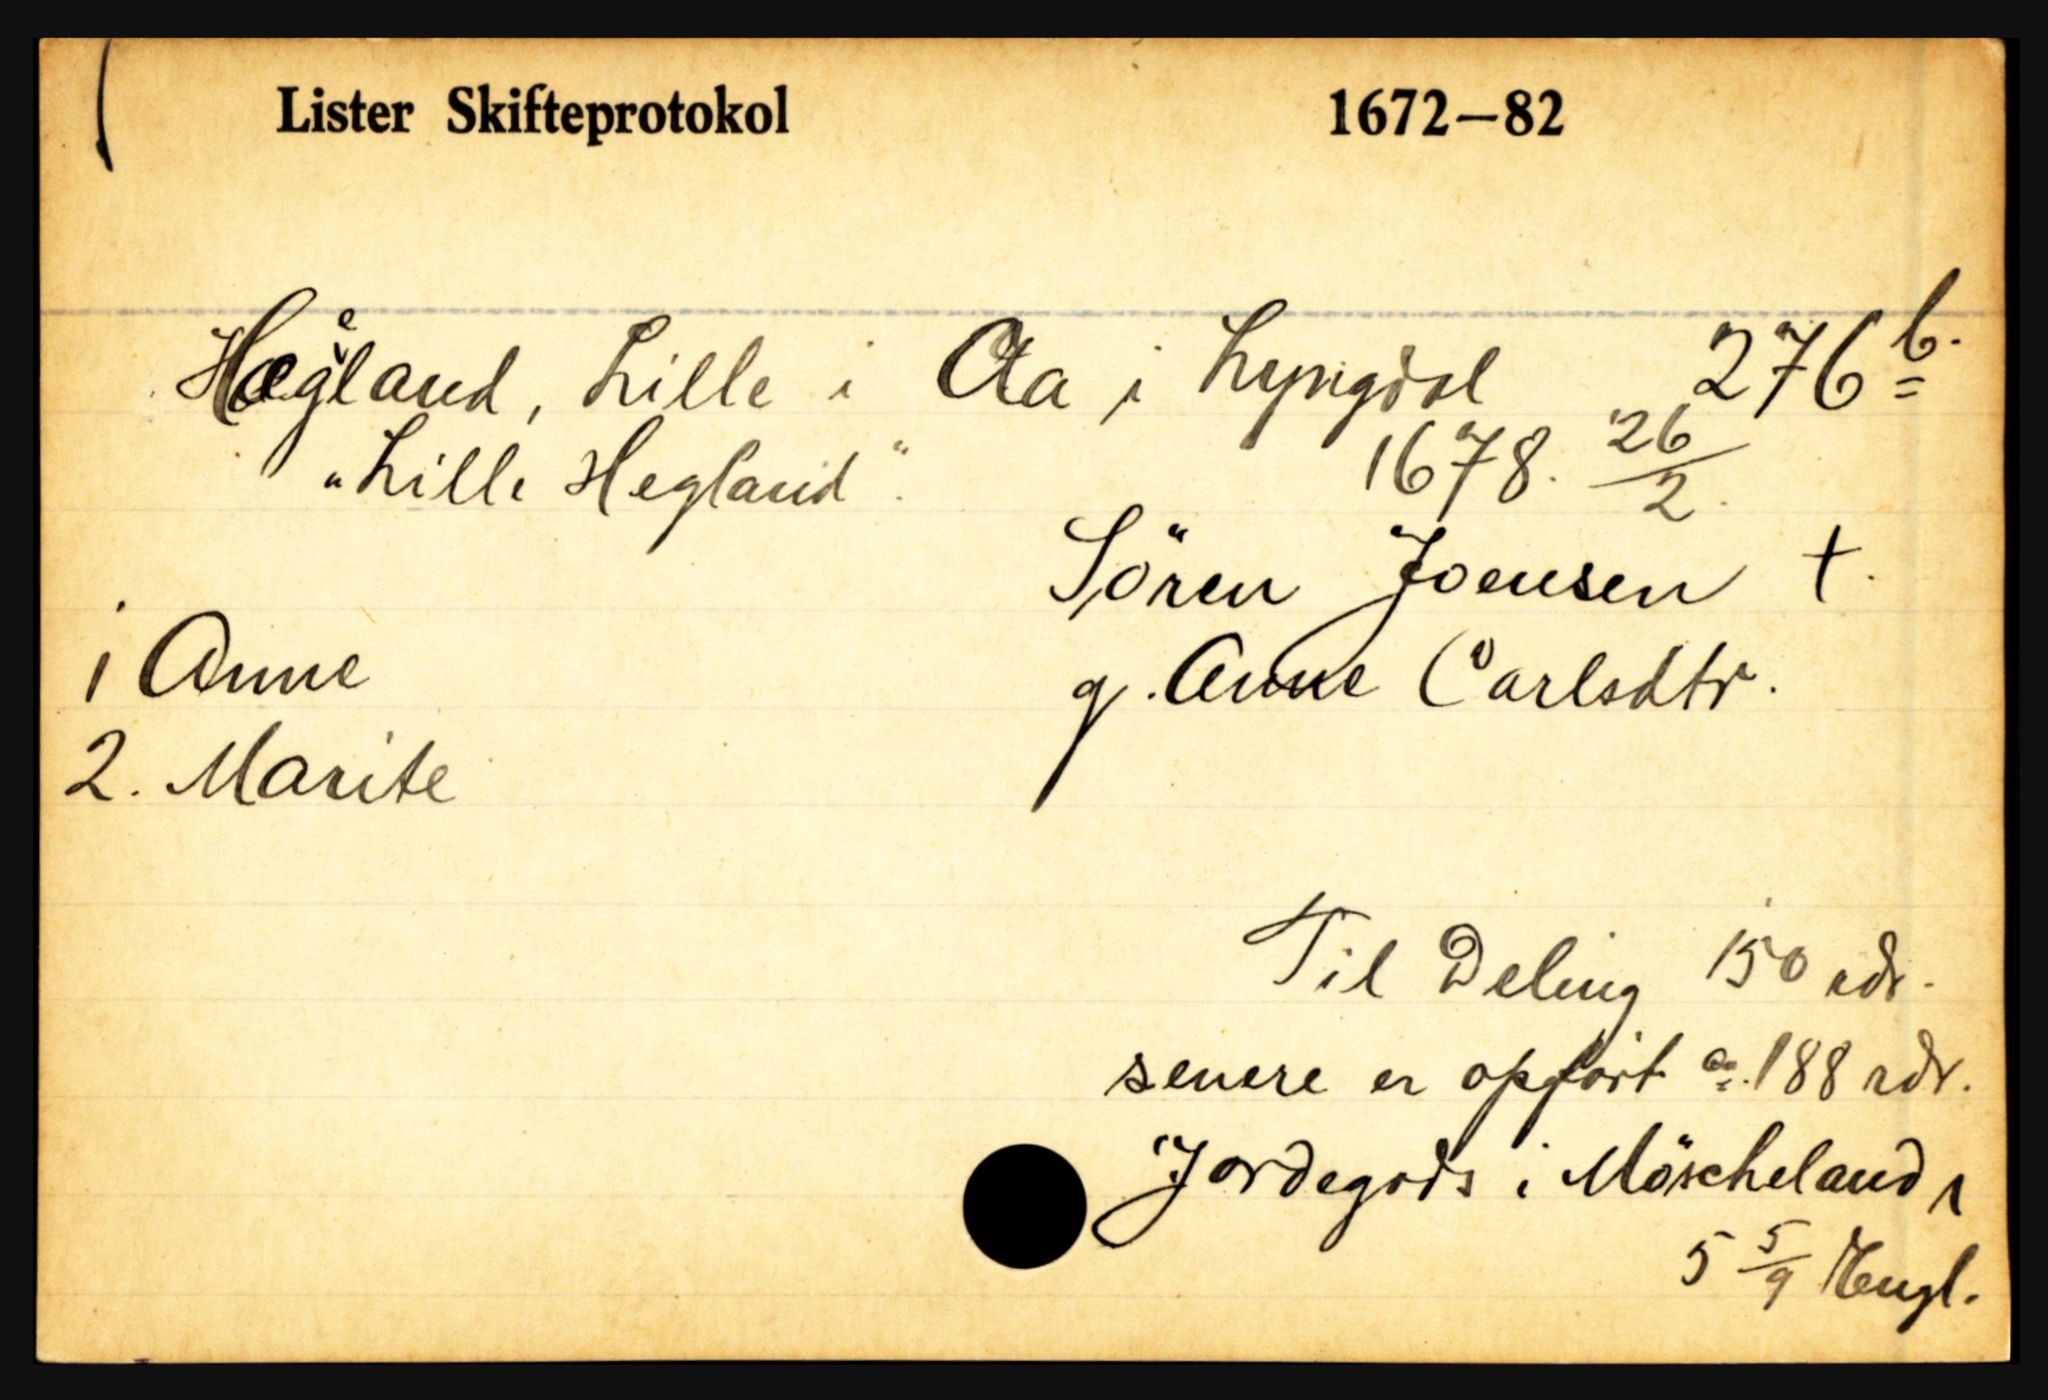 Lister Skifteprotokol 1672–82
Hægeland, Lille i Aa i Lyngdal 276 b.
"Lille Hegland". 1678. 26/2.
Sören Joensen †.
1 Anne g. Anne Carlsdtr.
2. Marite
Til Deling 150 rdr.
senere er opfört ca. 188 rdr.
Jordegods i Möscheland,
5 5/9 Engl.